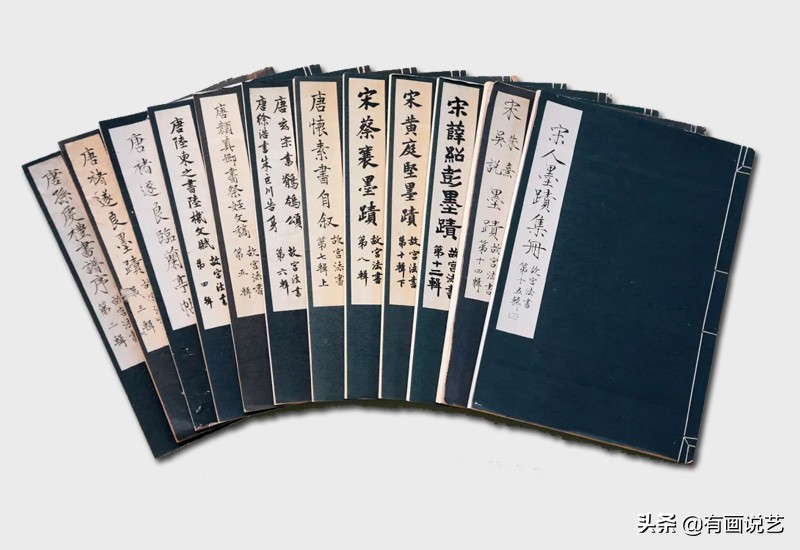 唐孫虔禮書譜序
故宮法書
第二輯
唐褚遂良墨蹟
故宮法書
第三輯
唐褚遂良臨蘭亭帖
唐陸柬之書陸機文賦
故宮法書
第四輯
唐顏真卿書祭姪文稿
故宮法書
第五輯
唐玄宗書鶺鴒頌
唐徐浩書朱巨川告身
故宮法書
第六輯
唐懷素書自叙
故宮法書
第七輯上
宋蔡襄墨蹟
故宮法書
第八輯
宋黃庭堅墨蹟
故宮法書
第十輯下
宋薛紹彭墨蹟
故宮法書
第十二輯
宋朱熹
吳說墨蹟
故宮法書
第十四輯
宋人墨蹟集冊
故宮法書
第十五輯
头条 @有画说艺